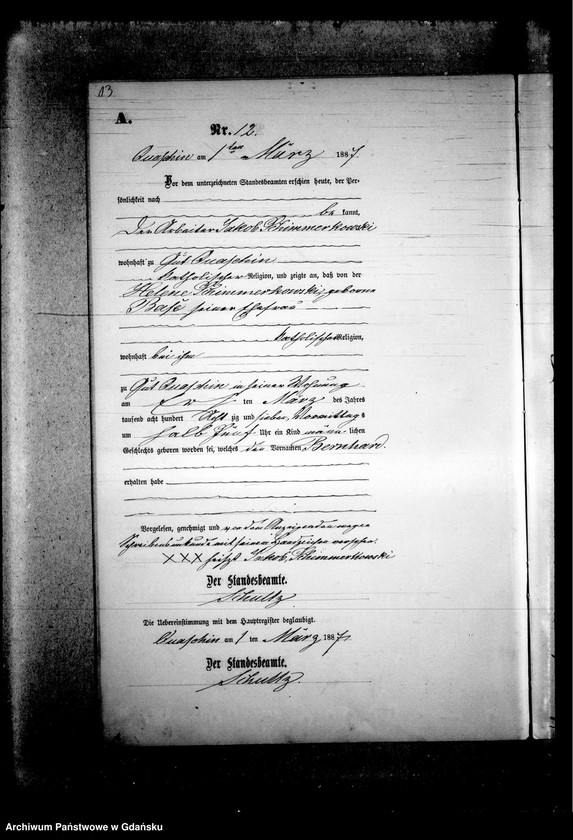 13
A.
Nr. 12.
Quaschin am 1ten März 1887.
Vor dem unterzeichneten Standesbeamten erschien heute, der Per-
sönlichkeit nach
be kannt,
Der Arbeiter Jakob
wohnhaft zu Gut Quaschin
katholischer Religion, und zeigte an, daß von der
Helene geborene
seiner Ehefrau
katholischer Religion,
wohnhaft bei ihm
zu Gut Quaschin in seiner Wohnung
am Ers ten März des Jahres
tausend acht hundert Acht zig und sieben, Vormittags
um halb fünf Uhr ein Kind männ lichen
Geschlechts geboren worden sei, welches den Vornamen Bernhard
erhalten habe
Vorgelesen, genehmigt und von dem Anzeigenden wegen
Schreibensunkunde mit seinem Handzeichen versehen
XXX heißt Jakob
Der Standesbeamte.
Schultz.
Die Uebereinstimmung mit dem Hauptregister beglaubigt.
Quaschin am 1 ten März 1887
Der Standesbeamte.
Schultz.
Archiwum Państwowe w Gdańsku